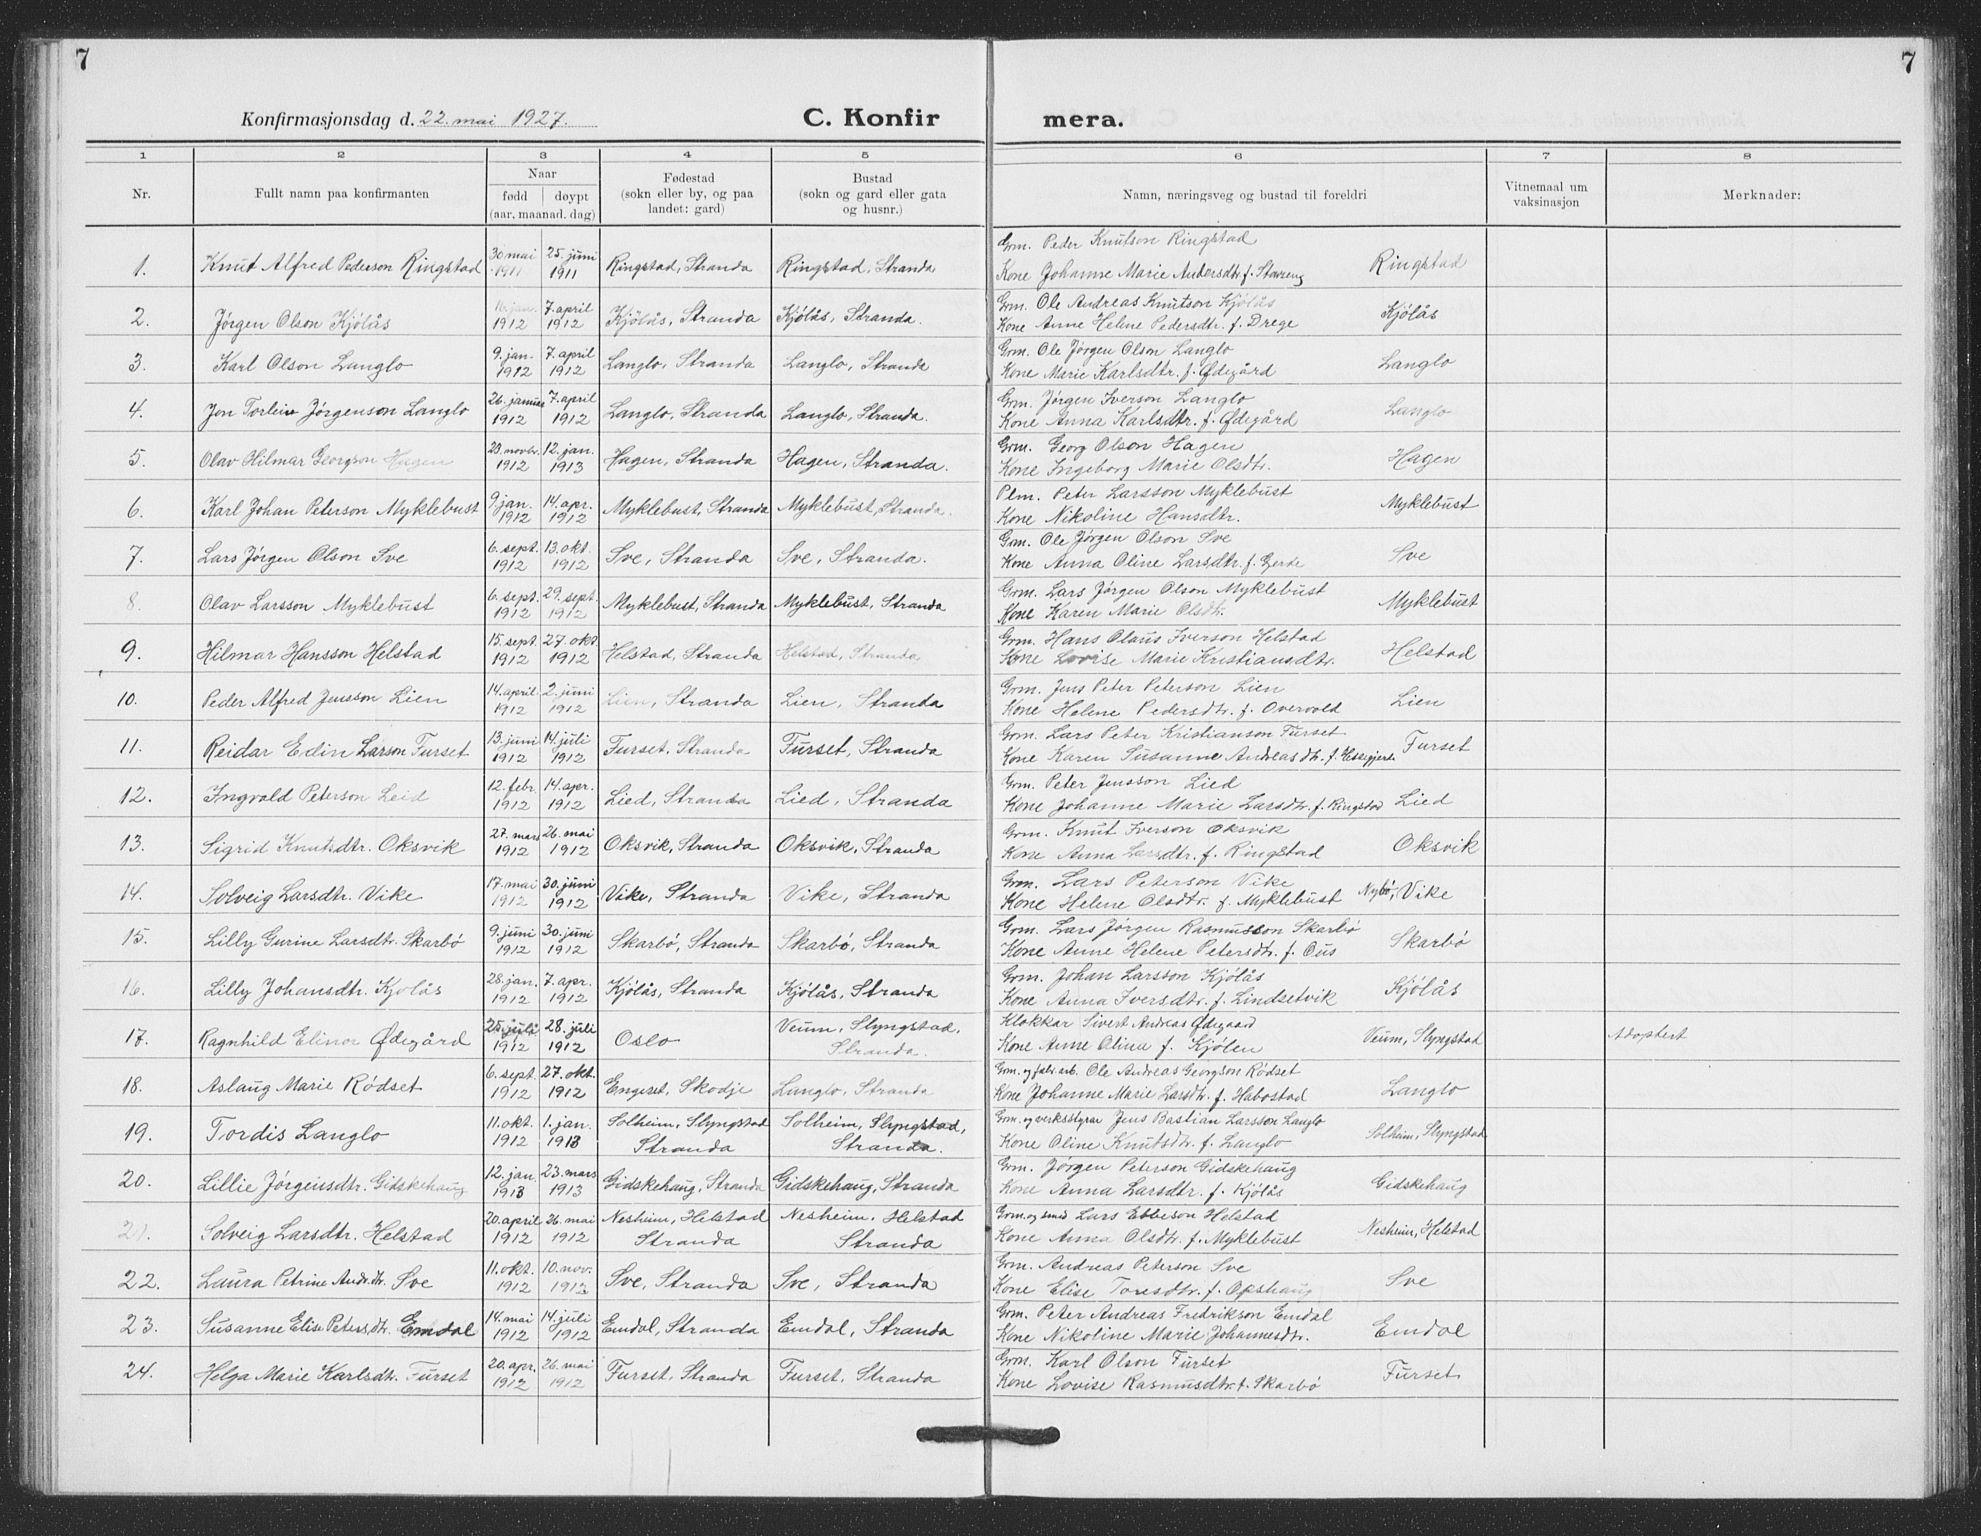 7
7
Konfirmasjonsdag d. 22. mai 1927.
C. Konfir
mera.
1 2 3 4 5 6 7 8
Nr.
Fullt namn paa konfirmanten
Naar
fødd døypt
(aar, maanad. dag)
Fødestad
(sokn eller by, og paa
landet: gard)
Bustad
(sokn og gard eller gata
og husnr.)
Namn, næringsveg og bustad til foreldri
Vitnemaal um
vaksinasjon
Merknader:
1. Knut Alfred Pederson Ringstad 30 mai 1911 25. juni 1911 Ringstad, Stranda Ringstad, Stranda
Grm. Peder Knutson Ringstad
Kone Johanne Marie Andersdtr. f. Stavreng Ringstad
2. Jörgen Olson Kjölås jan. 1912 7 april 1912 Kjölås, Stranda Kjölås, Stranda.
Grm. Ole Andreas Knutson Kjölås
Kone Anne Helene Pedersdtr. f. Drege Kjölås
3. Karl Olson Langlo 9. jan. 1912 7. april 1912 Langlo, Stranda Langlo, Stranda
Grm. Ole Jörgen Olson Langlo
Kone Marie Karlsdtr. f. Ødegård Langlo
4. Jon Torleiv Jörgenson Langlo 26. januar 1912 7. april 1912 Langlo, Stranda Langlo, Stranda.
Grm. Jörgen Iverson Langlo
Kone Anna Karlsdtr. f. Ødegård Langlo
5. Olav Hilmar Georgson Hagen 23. novbr. 1912 12. jan. 1913 Hagen, Stranda Hagen, Stranda.
Grm. Georg Olson Hagen
Kone Ingeborg Marie Olsdtr. Hagen
6. Karl Johan Peterson Myklebust 9 jan. 1912 14. apr. 1912 Myklebust, Stranda Myklebust, Stranda.
Plm. Peter Larsson Myklebust
Kone Nikoline Hansdtr. Myklebust
7. Lars Jörgen Olson Sve 6. sept. 1912 13. okt. 1912 Sve, Stranda Sve, Stranda.
Grm. Ole Jörgen Olson Sve
Kone Anna Oline Larsdtr. f. Gjerde Sve
8. Olav Larsson Myklebust 6. sept. 1912 29. sept. 1912 Myklebust, Stranda Myklebust, Stranda
Grm. Lars Jörgen Olson Myklebust
Kone Karen Marie Olsdtr. Myklebust
9. Hilmar Hansson Helstad 15. sept. 1912 27. okt. 1912 Helstad, Stranda Helstad, Stranda
Grm. Hans Olaus Iverson Helstad
Kone Lovise Marie Kristiansdtr. Helstad
10. Peder Alfred Jensson Lien 14. april 1912 2. juni 1912 Lien, Stranda Lien, Stranda
Grm. Jens Peter Peterson Lien
Kone Helene Pedersdtr. f. Overvold Lien
11. Reidar Edin Larson Furset 13. juni 1912 14. juli 1912 Furset, Stranda Furset, Stranda
Grm. Lars Peter Kristianson Furset
Kone Karen Susanne Andreasdtr. f. Hessgjerde Furset
12. Ingvald Peterson Leid 12. febr. 1912 14. apr. 1912 Lied, Stranda Lied, Stranda
Grm. Peter Jensson Lied
Kone Johanne Marie Larsdtr. f. Ringstad Lied
13. Sigrid Knutsdtr. Oksvik 27. mars 1912 26. mai 1912 Oksvik, Stranda Oksvik, Stranda
Grm. Knut Iverson Oksvik
Kone Anna Larsdtr. f. Ringstad Oksvik
14. Solveig Larsdtr. Vike 17. mai 1912 30. juni 1912 Vike, Stranda Vike, Stranda
Grm. Lars Peterson Vike
Kone Helene Olsdtr. f. Myklebust Nybö, Vike
15. Lilly Gurine Larsdtr. Skarbö 9. juni 1912 30. juni 1912 Skarbö, Stranda Skarbö, Stranda
Grm. Lars Jörgen Rasmusson Skarbö
Kone Anne Helene Petersdtr. f. Ous Skarbö
16. Lilly Johansdtr. Kjölås 28. jan. 1912 7. apr. 1912 Kjölås, Stranda Kjölås, Stranda
Grm. Johan Larsson Kjölås
Kone Anna Iversdtr. f. Lindsetvik Kjölås
17. Ragnhild Elinor Ødegård 25. juli 1912 28. juli 1912 Oslo Veum, Slyngstad, Stranda.
Klokkar Sivert Andreas Ødegaard
Kone Anne Olina f. Kjölen Veum, Slyngstad Adoptert
18. Aslaug Marie Rödset 6. sept. 1912 27. okt. 1912 Engeset, Skodje Langlo, Stranda
Grm. og fabr. arb. Ole Andreas Georgson Rödset
Kone Johanne Marie Larsdtr. f. Habostad Langlo
19. Tordis Langlo 11. okt. 1912 1. jan. 1913 Solheim, Slyngstad Stranda Solheim, Slyngstad, Stranda.
Grm. og verksstyrar Jens Bastian Larsson Langlo
Kone Oline Knutsdtr. f. Langlo Solheim, Slyngstad
20. Lillie Jörgensdtr. Gidskehaug 12. jan. 1913 23. mars 1913 Gidskehaug, Stranda Gidskehaug, Stranda
Grm. Jörgen Peterson Gidskehaug
Kone Anna Larsdtr. f. Kjölås Gidskehaug
21. Solveig Larsdtr. Helstad 20. april 1912 26. mai 1912 Nesheim, Helstad Stranda Nesheim, Helstad Stranda
Grm. og smed Lars Ebbeson Helstad
Kone Anna Olsdtr. f. Myklebust Nesheim, Helstad
22. Laura Petrine Andr.dtr. Sve 11. okt. 1912 10. nov. 1912 Sve, Stranda Sve, Stranda
Grm. Andreas Peterson Sve
Kone Elise Toresdtr. f. Opshaug Sve
23. Susanne Elise Petersdtr. Emdal 14. mai 1912 14. juli 1912 Emdal, Stranda Emdal, Stranda
Grm. Peter Andreas Fredrikson Emdal
Kone Nikoline Marie Johannesdtr. Emdal
24. Helga Marie Karlsdtr. Furset 20. apr. 1912 26. mai 1912 Furset, Stranda Furset, Stranda
Grm. Karl Olson Furset
Kone Lovise Rasmusdtr. f. Skarbö Furset